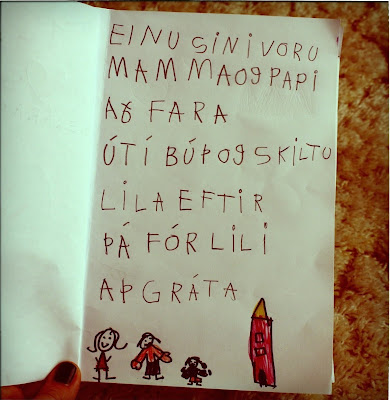 EINU SINI VORU
MAMMA Og PAPI
AÐ FARA
ÚTÍ BÚÞ Og SKILTU
LILA EFTIR
ÞÁ FÓR LILI
AÞ GRÁTA